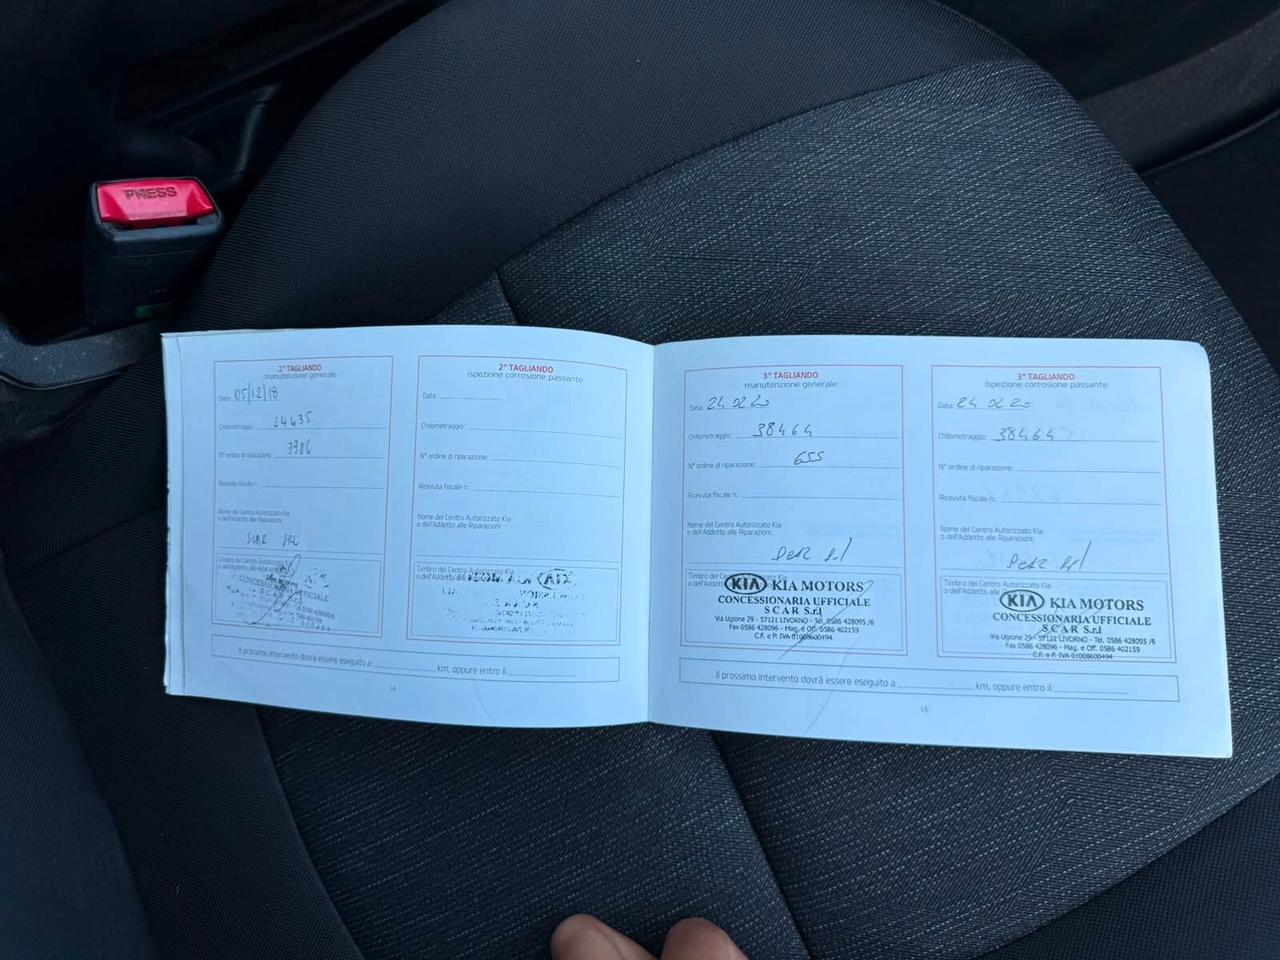 PRESS
2° TAGLIANDO
manutenzione generale
Data: 05/12/18
Chilometraggio: 24435
N° ordine di riparazione: 3986
Ricevuta fiscale n.:
Nome del Centro Autorizzato Kia
o dell'Addetto alle Riparazioni:
SCAR SRL
Timbro del Centro Autorizzato
o dell'Addetto
2° TAGLIANDO
ispezione corrosione passante
Data:
Chilometraggio:
N° ordine di riparazione:
Ricevuta fiscale n.:
Nome del Centro Autorizzato Kia
o dell'Addetto alle Riparazioni:
Timbro del Centro Autorizzato Kia
o dell'Addetto
Il prossimo intervento dovrà essere eseguito a km, oppure entro il
14
3° TAGLIANDO
manutenzione generale
Data: 24 02 20
Chilometraggio: 38464
N° ordine di riparazione: 655
Ricevuta fiscale n.:
Nome del Centro Autorizzato Kia
o dell'Addetto alle Riparazioni:
Timbro del Centro
o dell'Addetto
KIA KIA MOTORS
CONCESSIONARIA UFFICIALE
SCAR S.r.l
Via Ugione 29 - 57121 LIVORNO - Tel. 0586 428095 /6
Fax 0586 428096 - Mag. e Off. 0586 402159
C.F. e P. IVA 01008600494
3° TAGLIANDO
ispezione corrosione passante
Data: 24 02 20
Chilometraggio: 38464
N° ordine di riparazione:
Ricevuta fiscale n.:
Nome del Centro Autorizzato Kia
o dell'Addetto alle Riparazioni:
Timbro del Centro Autorizzato Kia
o dell'Addetto
KIA KIA MOTORS
CONCESSIONARIA UFFICIALE
SCAR S.r.l
Via Ugione 29 - 57121 LIVORNO - Tel. 0586 428095 /6
Fax 0586 428096 - Mag. e Off. 0586 402159
C.F. e P. IVA 01008600494
Il prossimo intervento dovrà essere eseguito a km, oppure entro il
15